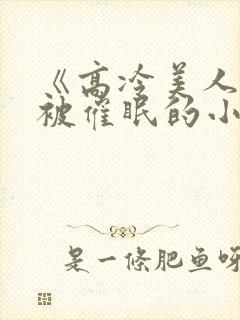 《高冷美人
被催眠的小
是一條肥鱼呀